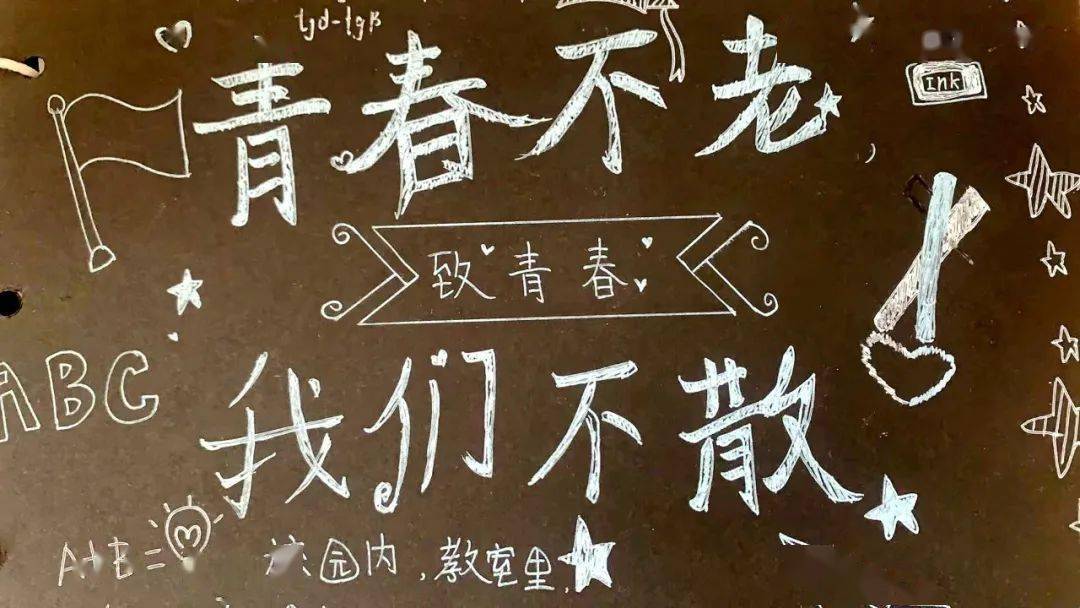 tgα-tgβ
青春不老
Ink
致青春
ABC
我们不散
A+B=
校园内,教室里,